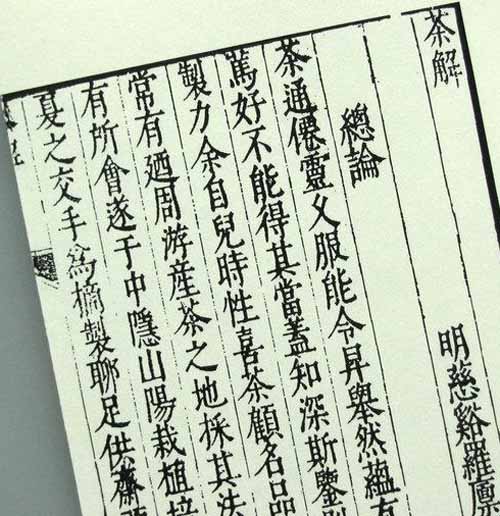 茶解
明慈谿羅廩
總論
茶通僊靈久服能令昇舉然蘊有
篤好不能得其當蓋知深斯鑒別
製力余自兒時性喜茶顧名品
常有迺周游産茶之地採其法
有所會遂于中隱山陽栽植培
夏之交手爲摘製聊足供齋